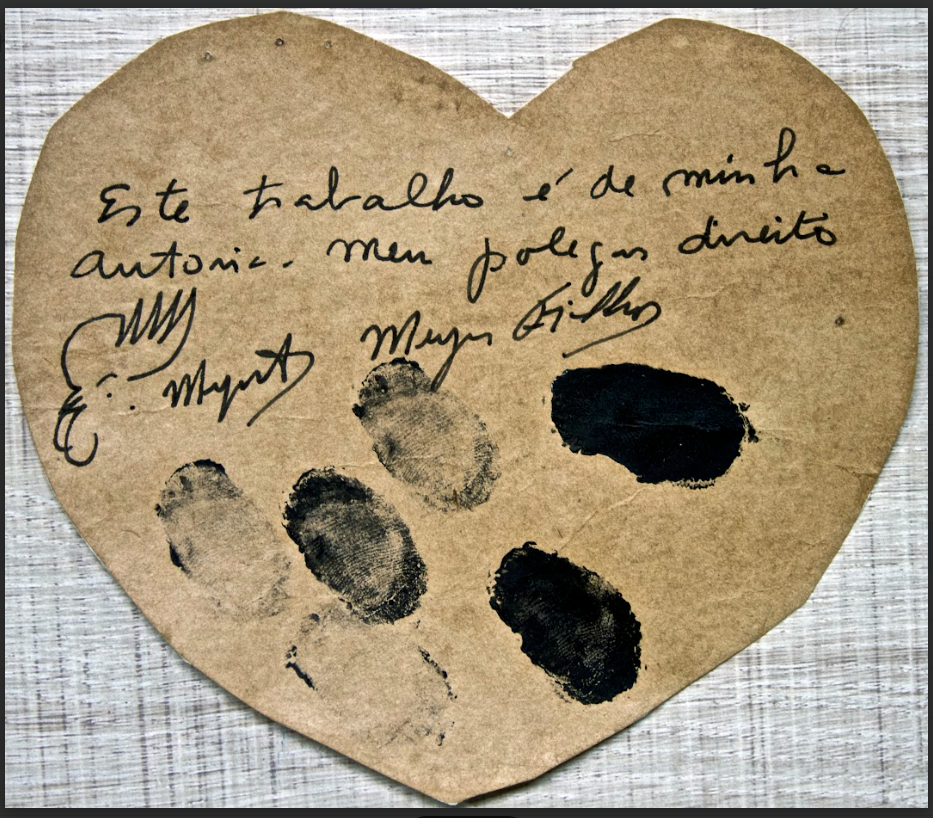 Este trabalho é de minha
autoria. Meu polegar direito
Meyer Filho